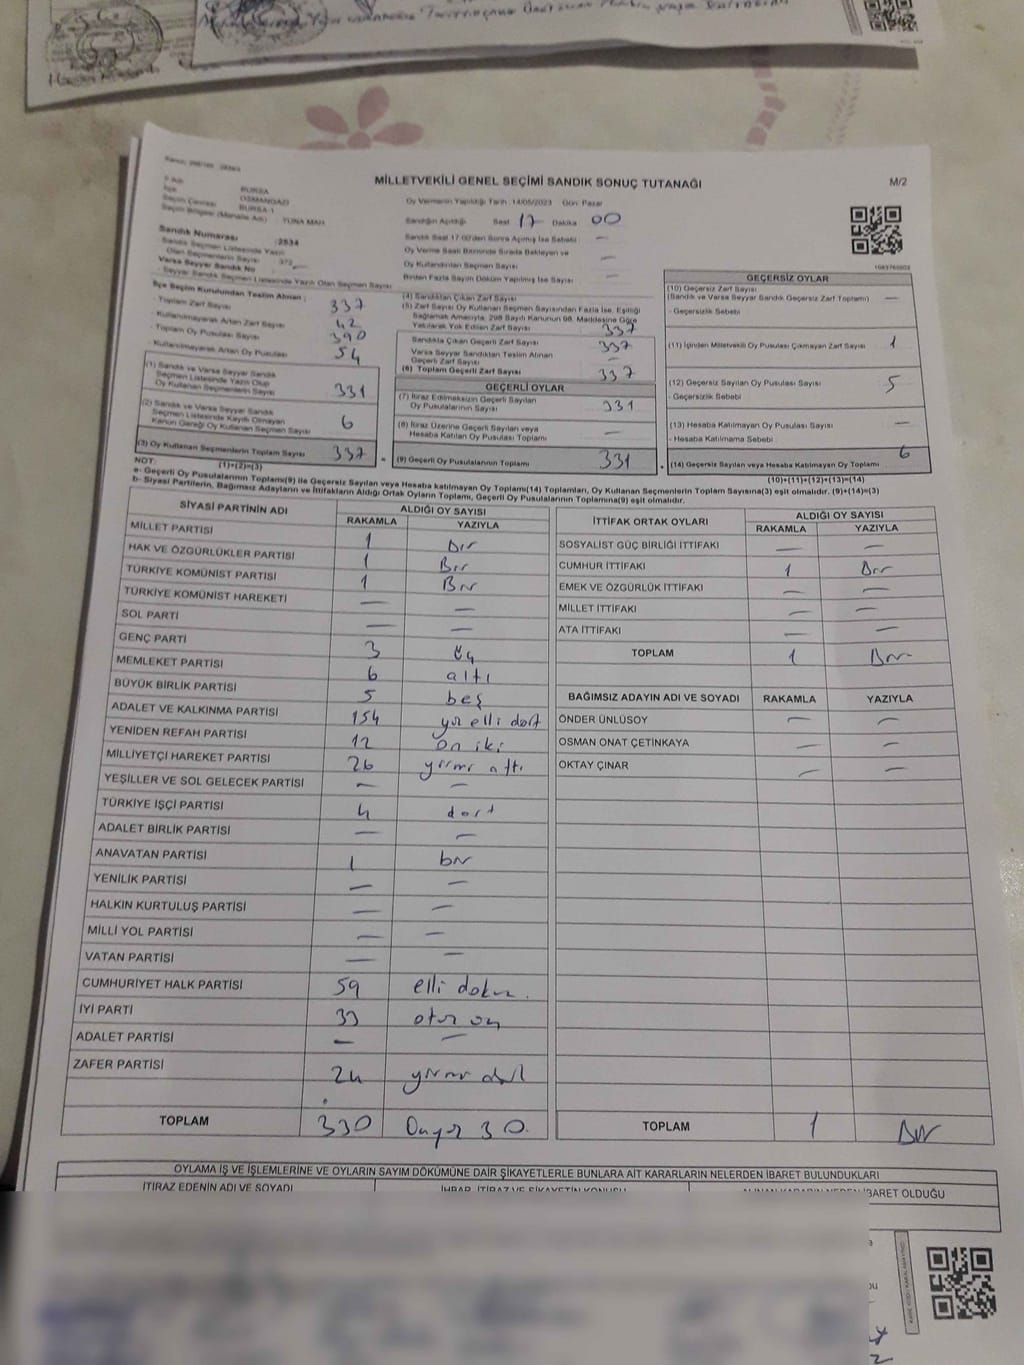 MİLLETVEKİLİ GENEL SEÇİMİ SANDIK SONUÇ TUTANAĞI
M/2
BURSA
OSMANGAZİ
BURSA-1
TUNA MAH
Oy Vermenin Yapıldığı Tarih :14/05/2023 Gün: Pazar
Sandığın Açıldığı Saat 17 Dakika 00
Sandık Numarası :2534
Sandık Saat 17:00'den Sonra Açılmış İse Sebebi —
Oy Verme Saati Bitiminde Sırada Bekleyen ve
Oy Kullandırılan Seçmen Sayısı —
Birden Fazla Sayım Döküm Yapılmış İse Sayısı —
Sandık Seçmen Listesinde Yazılı
Olan Seçmenlerin Sayısı :372
Varsa Seyyar Sandık No
Seyyar Sandık Seçmen Listesinde Yazılı Olan Seçmen Sayısı
İlçe Seçim Kurulundan Teslim Alınan :
- Toplam Zarf Sayısı 337
- Kullanılmayarak Artan Zarf Sayısı 42
- Toplam Oy Pusulası Sayısı 390
- Kullanılmayarak Artan Oy Pusulası 54
(1) Sandık ve Varsa Seyyar Sandık
Seçmen Listesinde Yazılı Olup
Oy Kullanan Seçmenlerin Sayısı 331
(2) Sandık ve Varsa Seyyar Sandık
Seçmen Listesinde Kayıtlı Olmayan
Kanun Gereği Oy Kullanan Seçmen Sayısı 6
(3) Oy Kullanan Seçmenlerin Toplam Sayısı 337
(1)+(2)=(3)
(4) Sandıktan Çıkan Zarf Sayısı
(5) Zarf Sayısı Oy Kullanan Seçmen Sayısından Fazla İse, Eşitliği
Sağlamak Amacıyla, 298 Sayılı Kanunun 98. Maddesine Göre
Yakılarak Yok Edilen Zarf Sayısı 337
Sandıkta Çıkan Geçerli Zarf Sayısı 337
Varsa Seyyar Sandıktan Teslim Alınan
Geçerli Zarf Sayısı —
(6) Toplam Geçerli Zarf Sayısı 337
GEÇERLİ OYLAR
(7) İtiraz Edilmeksizin Geçerli Sayılan
Oy Pusulalarının Sayısı 331
(8) İtiraz Üzerine Geçerli Sayılan veya
Hesaba Katılan Oy Pusulası Toplamı —
(9) Geçerli Oy Pusulalarının Toplamı 331
GEÇERSİZ OYLAR
(10) Geçersiz Zarf Sayısı
(Sandık ve Varsa Seyyar Sandık Geçersiz Zarf Toplamı) —
- Geçersizlik Sebebi
(11) İçinden Milletvekili Oy Pusulası Çıkmayan Zarf Sayısı 1
(12) Geçersiz Sayılan Oy Pusulası Sayısı 5
- Geçersizlik Sebebi
(13) Hesaba Katılmayan Oy Pusulası Sayısı —
- Hesaba Katılmama Sebebi
(14) Geçersiz Sayılan veya Hesaba Katılmayan Oy Toplamı 6
(10)+(11)+(12)+(13)=(14)
NOT:
a- Geçerli Oy Pusulalarının Toplamı(9) ile Geçersiz Sayılan veya Hesaba katılmayan Oy Toplamı(14) Toplamları, Oy Kullanan Seçmenlerin Toplam Sayısına(3) eşit olmalıdır. (9)+(14)=(3)
b- Siyasi Partilerin, Bağımsız Adayların ve İttifakların Aldığı Ortak Oyların Toplamı, Geçerli Oy Pusulalarının Toplamına(9) eşit olmalıdır.
SİYASİ PARTİNİN ADI ALDIĞI OY SAYISI
RAKAMLA YAZIYLA
MİLLET PARTİSİ 1 Bir
HAK VE ÖZGÜRLÜKLER PARTİSİ 1 Bir
TÜRKİYE KOMÜNİST PARTİSİ 1 Bir
TÜRKİYE KOMÜNİST HAREKETİ — —
SOL PARTİ — —
GENÇ PARTİ 3 üç
MEMLEKET PARTİSİ 6 altı
BÜYÜK BİRLİK PARTİSİ 5 beş
ADALET VE KALKINMA PARTİSİ 154 yüz elli dört
YENİDEN REFAH PARTİSİ 12 on iki
MİLLİYETÇİ HAREKET PARTİSİ 26 yirmi altı
YEŞİLLER VE SOL GELECEK PARTİSİ — —
TÜRKİYE İŞÇİ PARTİSİ 4 dört
ADALET BİRLİK PARTİSİ — —
ANAVATAN PARTİSİ 1 bir
YENİLİK PARTİSİ — —
HALKIN KURTULUŞ PARTİSİ — —
MİLLİ YOL PARTİSİ — —
VATAN PARTİSİ — —
CUMHURİYET HALK PARTİSİ 59 elli dokuz
İYİ PARTİ 33 otuz üç
ADALET PARTİSİ — —
ZAFER PARTİSİ 24 yirmi dört
TOPLAM 330 30.
İTTİFAK ORTAK OYLARI ALDIĞI OY SAYISI
RAKAMLA YAZIYLA
SOSYALİST GÜÇ BİRLİĞİ İTTİFAKI — —
CUMHUR İTTİFAKI 1 Bir
EMEK VE ÖZGÜRLÜK İTTİFAKI — —
MİLLET İTTİFAKI — —
ATA İTTİFAKI — —
TOPLAM 1 Bir
BAĞIMSIZ ADAYIN ADI VE SOYADI RAKAMLA YAZIYLA
ÖNDER ÜNLÜSOY — —
OSMAN ONAT ÇETİNKAYA — —
OKTAY ÇINAR — —
TOPLAM 1 Bir
OYLAMA İŞ VE İŞLEMLERİNE VE OYLARIN SAYIM DÖKÜMÜNE DAİR ŞİKAYETLERLE BUNLARA AİT KARARLARIN NELERDEN İBARET BULUNDUKLARI
İTİRAZ EDENİN ADI VE SOYADI İHBAR, İTİRAZ VE ŞİKAYETİN KONUSU ALINAN KARARIN NEDEN İBARET OLDUĞU